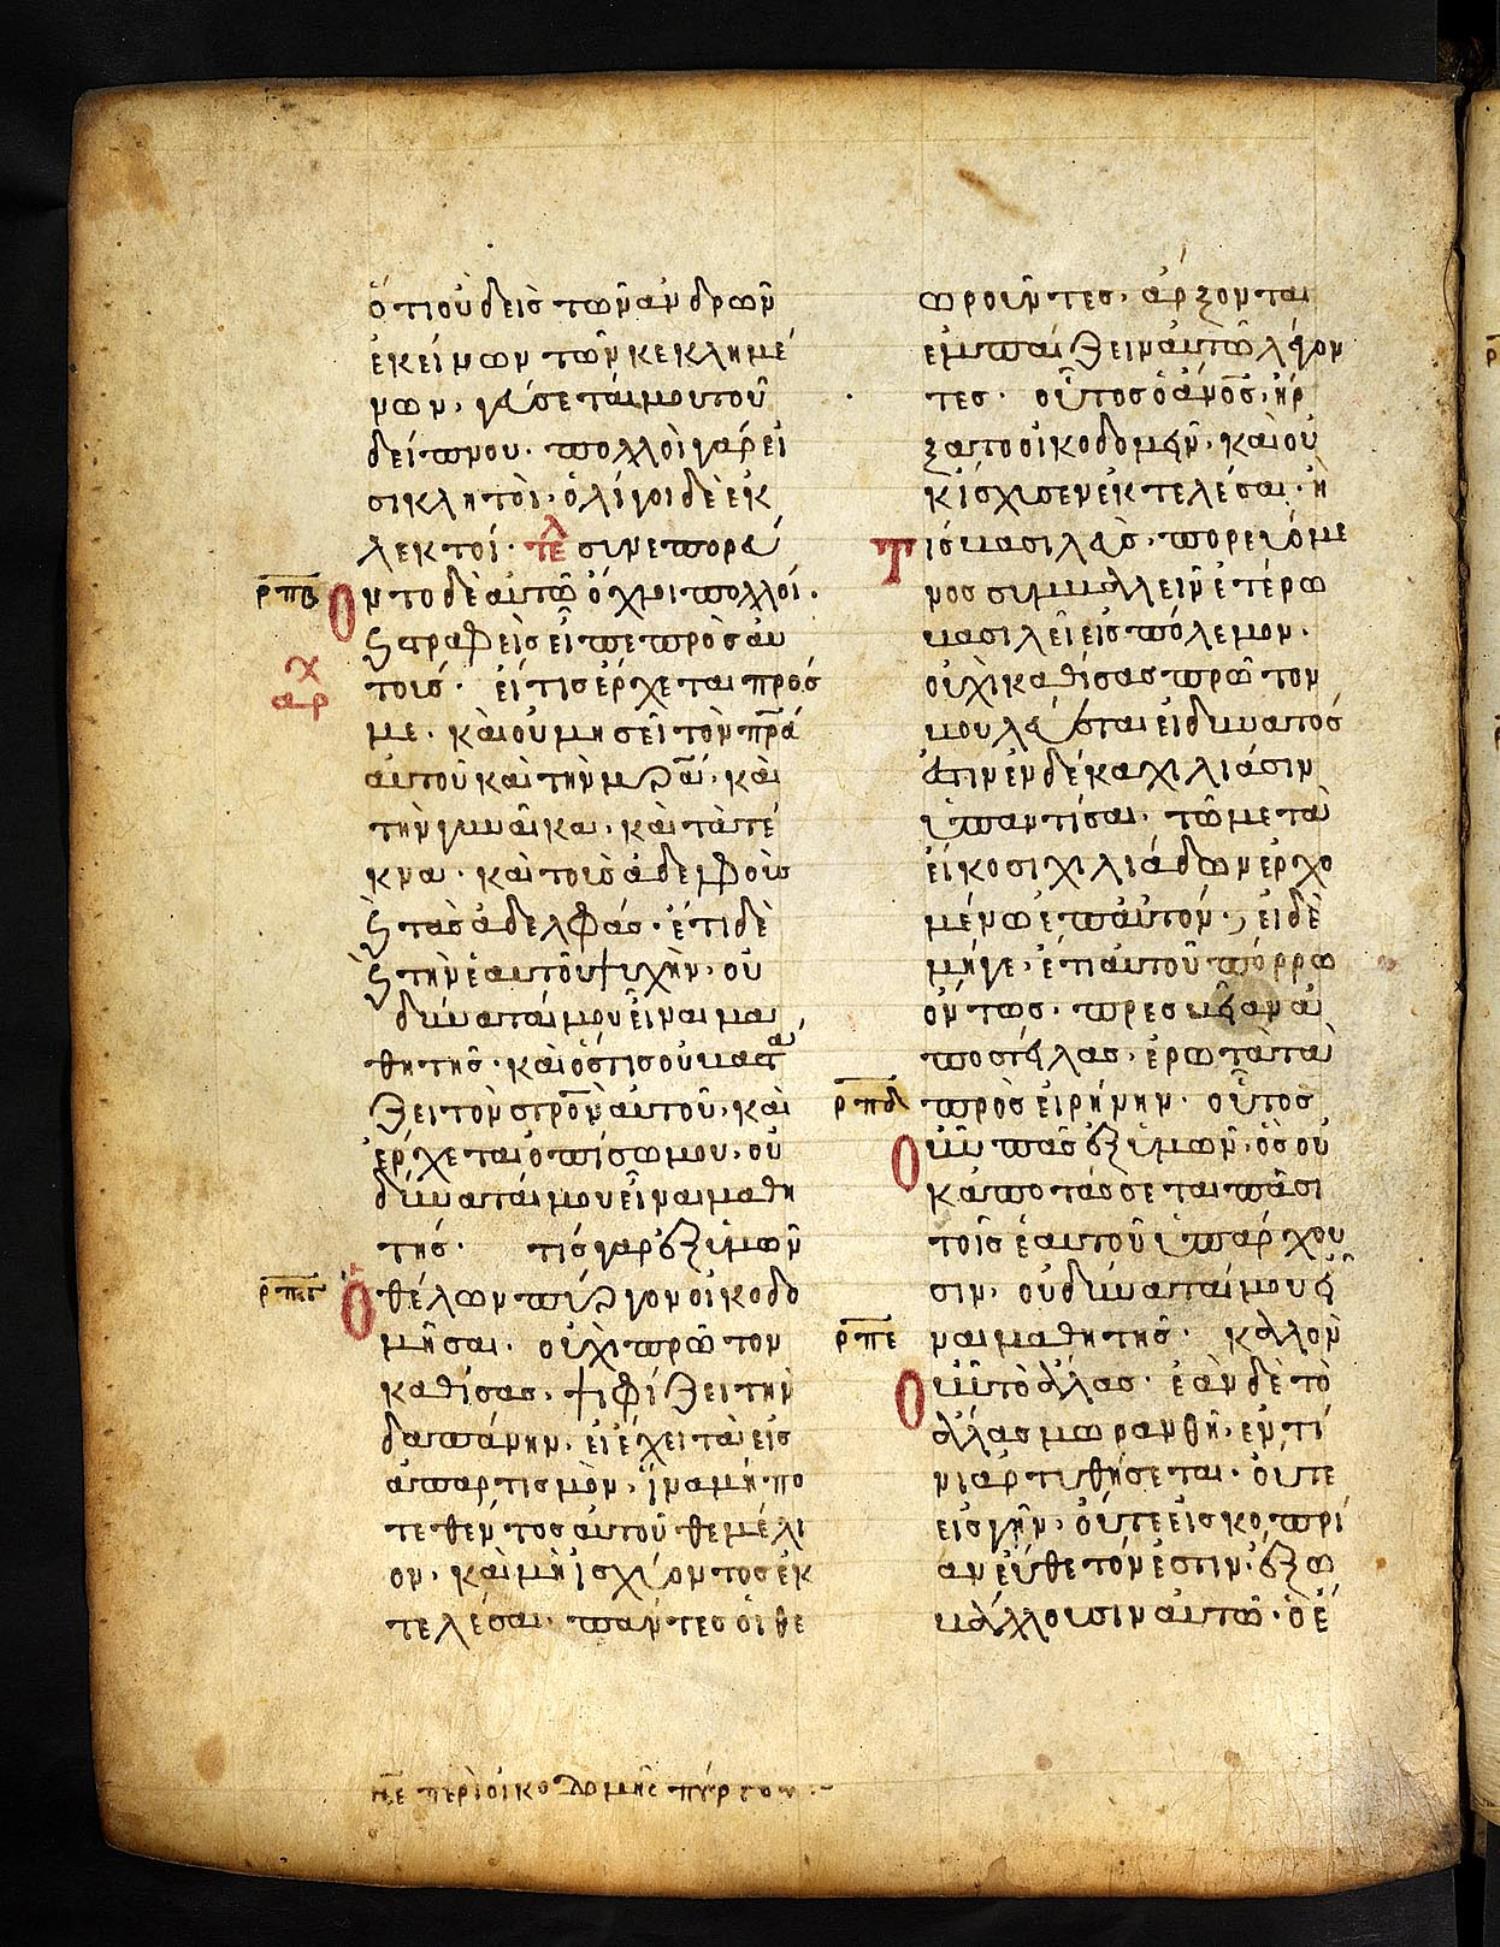 ὅτι οὐδεὶς τῶν ἀνδρῶν
ἐκείνων τῶν κεκλημέ
νων, γεύσεταί μου τοῦ
δείπνου. πολλοὶ γάρ εἰ
σι κλητοὶ, ὀλίγοι δὲ ἐκ
λεκτοί. τελ συνεπορεύ
ρπβ
οντο δὲ αὐτῶ ὄχλοι πολλοί.
ϛραφεὶς εἶπε πρὸς αὐ
χ
αρ
τούς. εἴ τις ἔρχεται πρός
με. καὶ οὐ μησεῖ τὸν πρα
αὐτοῦ καὶ τὴν μρα, καὶ
τὴν γυναῖκα, καὶ τὰ τέ
κνα. καὶ τοὺς ἀδελφοὺς
ϛ τὰς ἀδελφάς. ἔτι δὲ
ϛ τὴν ἑαυτοῦ ψυχὴν, οὐ
δύναταί μου εἶναι μα
θητής. καὶ ὅστις οὐ βαστα
ζει τὸν στρον αὐτοῦ, καὶ
ἔρχεται ὀπίσω μου, οὐ
δύναταί μου εἶναι μαθη
τής. τίς γὰρ ἐξ ὑμῶν
ρπγ
ὁ θέλων πύργον οἰκοδο
μῆσαι. οὐχὶ πρῶτον
καθίσας, ψιφίζει τὴν
δαπάνην, εἰ ἔχει τὰ εἰς
ἀπαρτισμὸν, ἵνα μή πο
τε θέντος αὐτοῦ θεμέλι
ον, καὶ μὴ ἰσχύοντος ἐκ
τελέσαι. πάντες οἱ θε
ωροῦντες, ἄρξονται
ἐμπαίζειν αὐτῶ λέγον
τες. οὗτος ὁ ανος, ἤρ
ξατο οἰκοδομεῖν, καὶ οὐ
κ ἴσχυσεν ἐκτελέσαι. ἢ
Τίς βασιλεὺς, πορευόμε
νος συμβαλλεῖν ἑτέρω
βασιλεῖ εἰς πόλεμον.
οὐχὶ καθίσας πρῶτον
βουλεύεται εἰ δυνατός
ἐστιν ἐν δέκα χιλιάσιν
ὑπαντίσαι, τῶ μετὰ
εἴκοσι χιλιάδων ἐρχο
μένω ἐπ αὐτόν., εἰ δὲ
μήγε, ἔτι αὐτοῦ πόρρω
ὄντως. πρεσβείαν ἀ
ποστείλας, ἐρωτὰ τὰ
ρπδ
πρὸς εἰρήνην. οὗτος
οὖν πᾶς ἐξ ὑμῶν, ὃς οὐ
κ ἀποτάσσεται πᾶσι
τοῖς ἑαυτοῦ ὑπάρχου
σιν, οὐ δύναταί μου εἶ
ρπε
ναι μαθητής. καλὸν
οὖν τὸ ἅλας. ἐὰν δὲ τὸ
ἅλας μωρανθῆ, ἐν τί
νι ἀρτυθήσεται. οὔτε
εἰς γῆν, οὔτε εἰς κοπρί
αν εὔθετόν ἐστιν, ἔξω
βάλλουσιν αὐτῶ. ὁ ἔ
νε περὶ οἰκοδομῆς πύργου :-